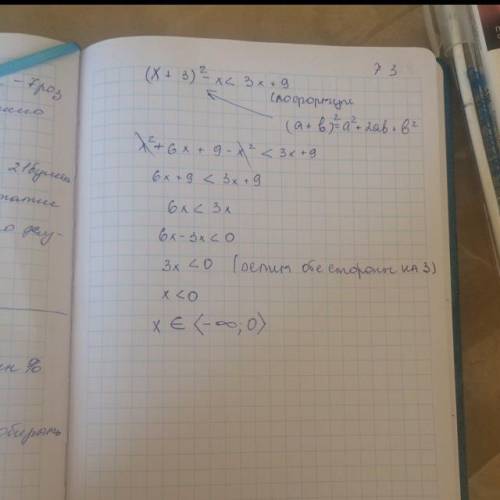 - 7роз
73
(x + 3)² - x < 3x + 9
(по формуле
(a + b)² = a² + 2ab + b²
x² + 6x + 9 - x² < 3x + 9
6x + 9 < 3x + 9
6x < 3x
6x - 3x < 0
3x < 0 (делим обе стороны на 3)
x < 0
x ∈ (-∞; 0)